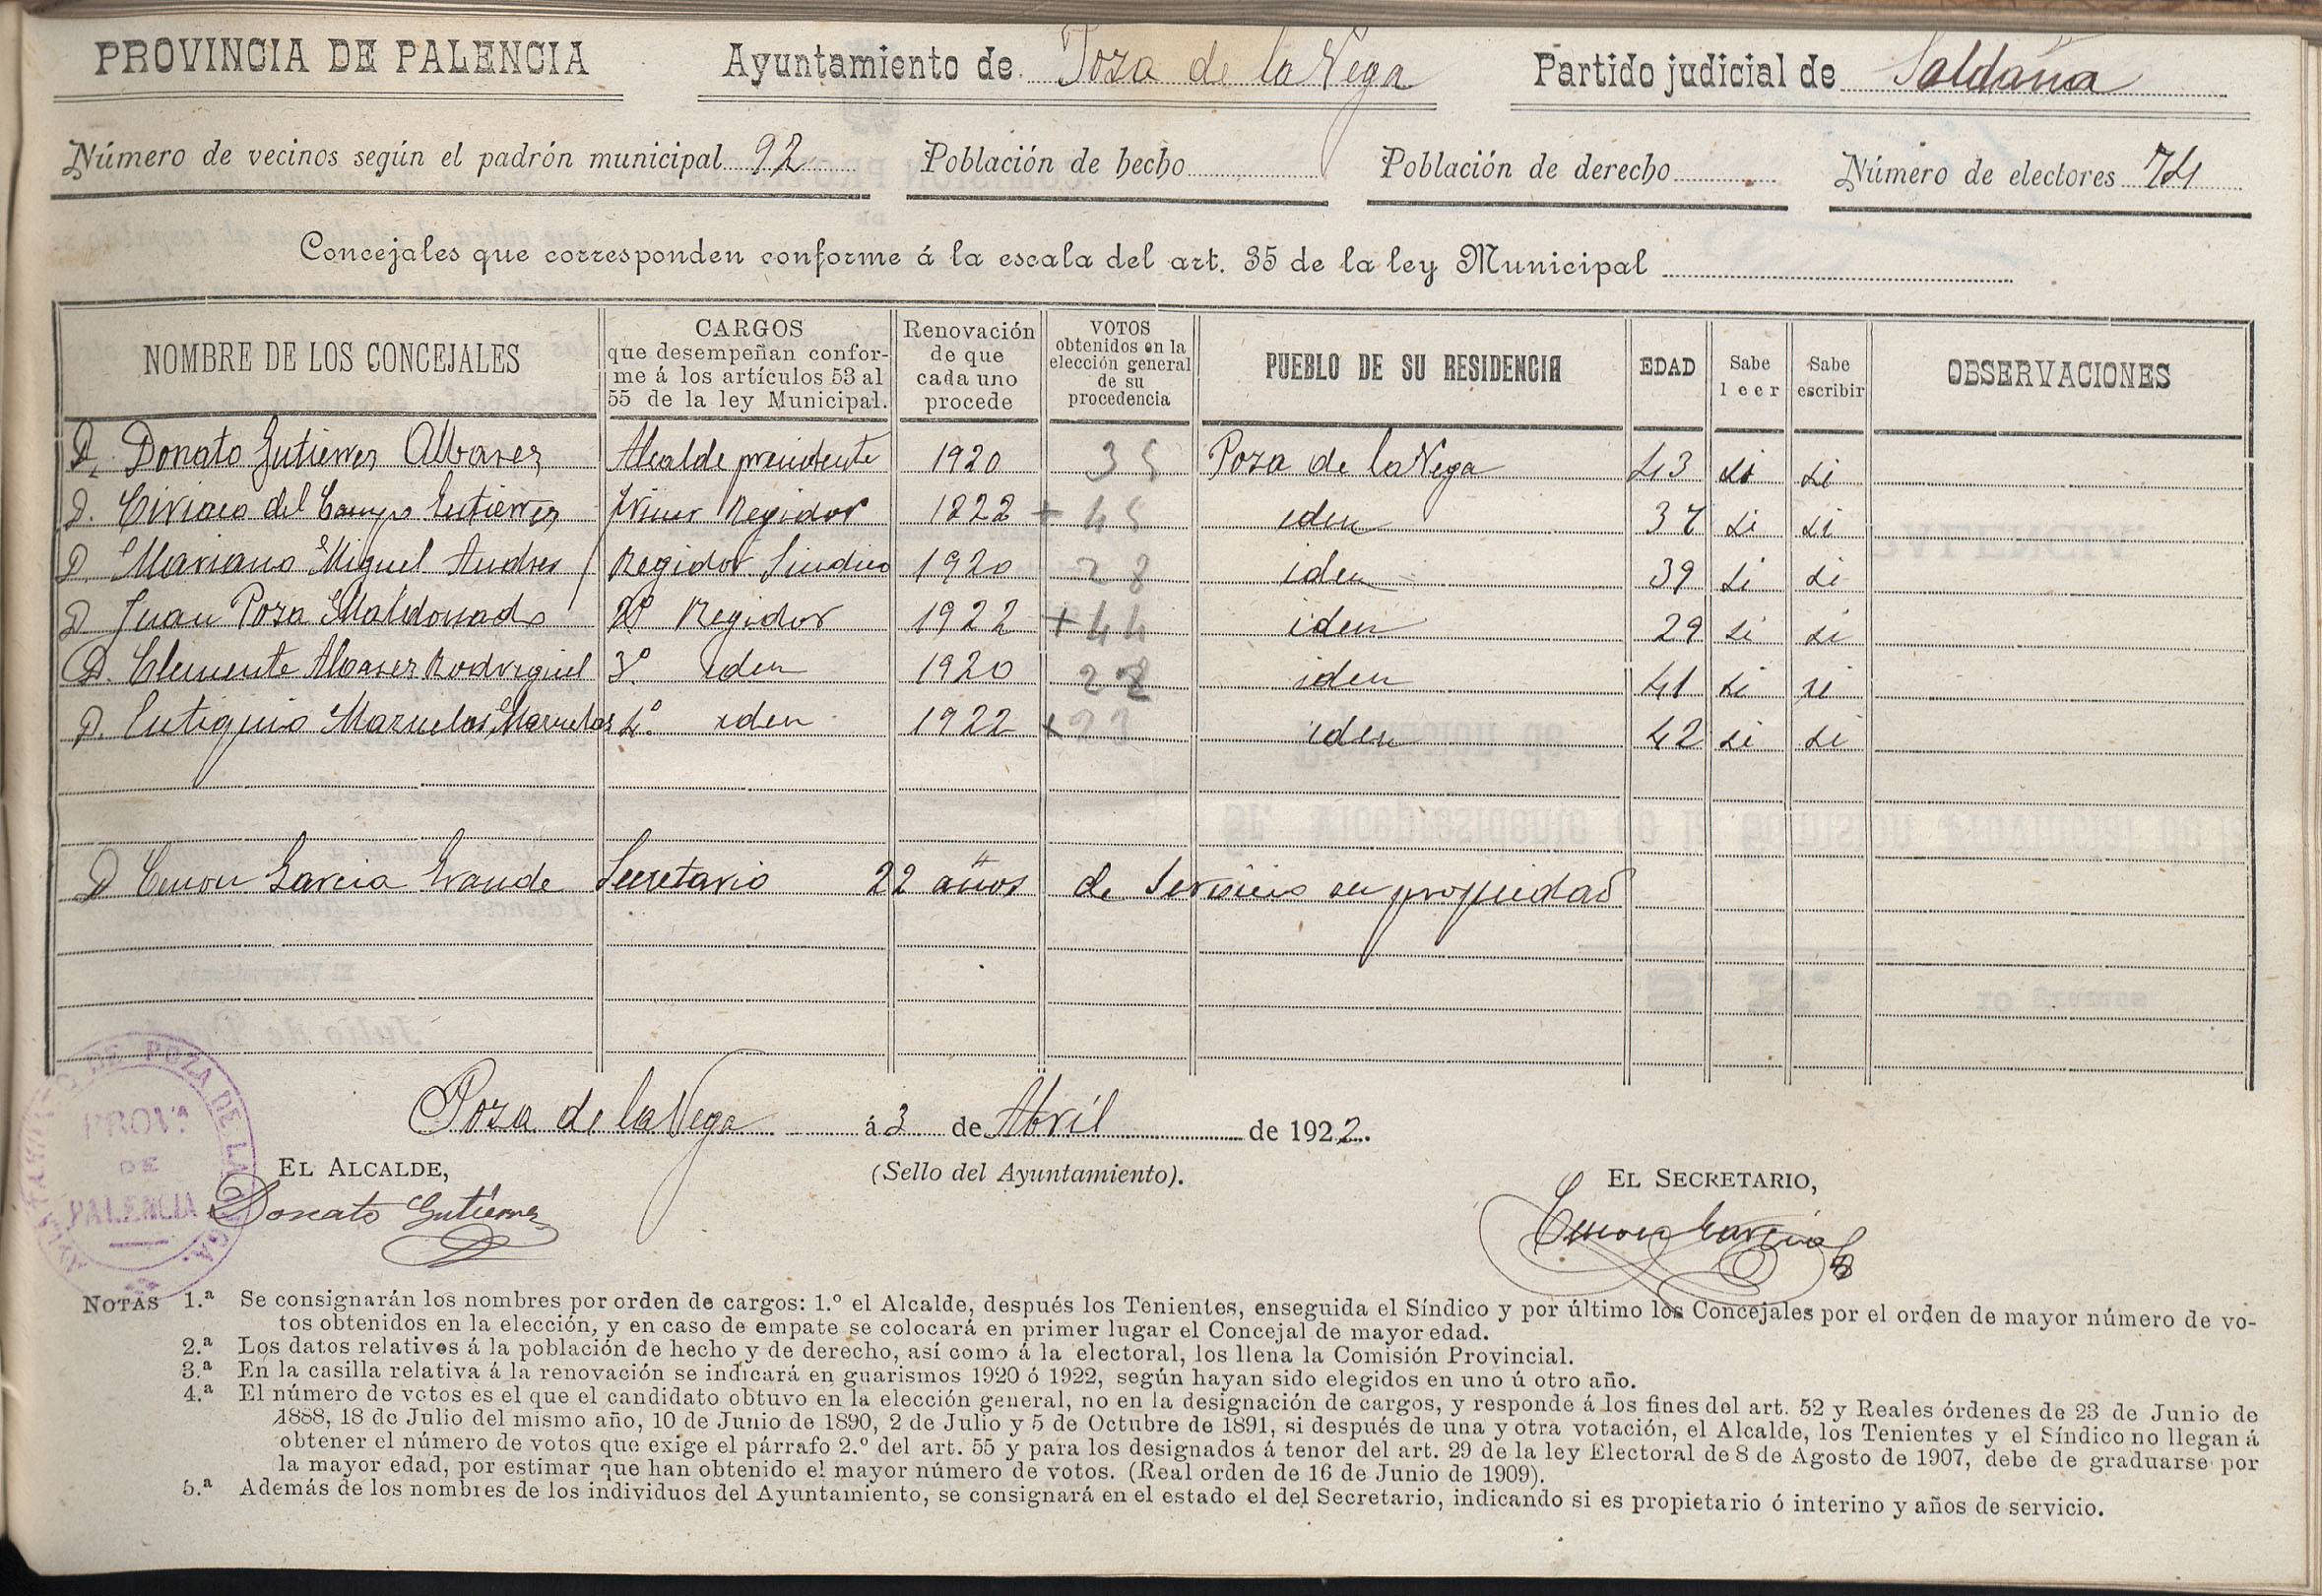 PROVINCIA DE PALENCIA Ayuntamiento de Poza de la Vega Partido judicial de Saldaña
Número de vecinos según el padrón municipal 92 Población de hecho Población de derecho Número de electores 74
Concejales que corresponden conforme á la escala del art. 35 de la ley Municipal
NOMBRE DE LOS CONCEJALES CARGOS que desempeñan conforme á los artículos 53 al 55 de la ley Municipal. Renovación de que cada uno procede VOTOS obtenidos en la elección general de su procedencia PUEBLO DE SU RESIDENCIA EDAD Sabe leer Sabe escribir OBSERVACIONES
D. Donato Gutierrez Albarez Alcalde presidente 1920 35 Poza de la Vega 43 si si
D. Ciriaco del Campo Gutierrez primer Regidor 1922 + 45 iden 37 si si
D. Mariano Miguel Andres Regidor Sindico 1920 28 iden 39 si si
D. Juan Poza Maldonado 2º Regidor 1922 + 44 iden 29 si si
D. Clemente Alvarez 3º iden 1920 iden 41 si si
D. Eutiquio Mazuelas Mazuelas 4º iden 1922 + 23 iden 42 si si
D Cenon Garcia Grande Secretario 22 años de Servicio en propiedad
Poza de la Vega á 3 de Abril de 1922.
EL ALCALDE, (Sello del Ayuntamiento). EL SECRETARIO,
Donato Gutierrez Cenon Garcia
AYUNTAMIENTO DE POZA DE LA VEGA
PROVª
DE
PALENCIA
NOTAS 1.ª Se consignarán los nombres por orden de cargos: 1.º el Alcalde, después los Tenientes, enseguida el Síndico y por último los Concejales por el orden de mayor número de vo-
tos obtenidos en la elección, y en caso de empate se colocará en primer lugar el Concejal de mayor edad.
2.ª Los datos relativos á la población de hecho y de derecho, así como á la electoral, los llena la Comisión Provincial.
3.ª En la casilla relativa á la renovación se indicará en guarismos 1920 ó 1922, según hayan sido elegidos en uno ú otro año.
4.ª El número de votos es el que el candidato obtuvo en la elección general, no en la designación de cargos, y responde á los fines del art. 52 y Reales órdenes de 23 de Junio de
1888, 18 de Julio del mismo año, 10 de Junio de 1890, 2 de Julio y 5 de Octubre de 1891, si después de una y otra votación, el Alcalde, los Tenientes y el Síndico no llegan á
obtener el número de votos que exige el párrafo 2.º del art. 55 y para los designados á tenor del art. 29 de la ley Electoral de 8 de Agosto de 1907, debe de graduarse por
la mayor edad, por estimar que han obtenido el mayor número de votos. (Real orden de 16 de Junio de 1909).
5.ª Además de los nombres de los individuos del Ayuntamiento, se consignará en el estado el del Secretario, indicando si es propietario ó interino y años de servicio.